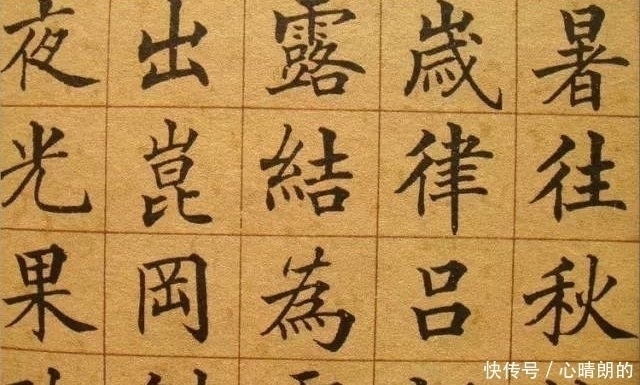 暑往秋
嵗律呂
露結為
出崑岡
夜光果
快传号 / 心晴朗的